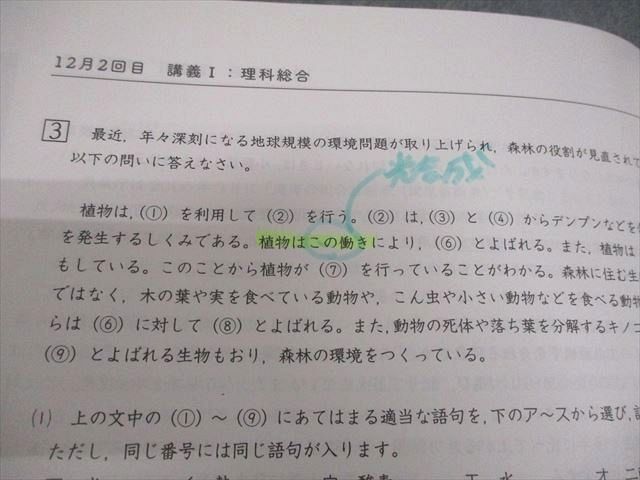 12月2回目 講義Ⅰ：理科総合
3 最近，年々深刻になる地球規模の環境問題が取り上げられ，森林の役割が見直されて
以下の問いに答えなさい。
光合成
植物は，(①) を利用して (②) を行う。(②) は，(③) と (④) からデンプンなどを
を発生するしくみである。植物はこの働きにより，(⑥) とよばれる。また，植物は
もしている。このことから植物が (⑦) を行っていることがわかる。森林に住む生
ではなく，木の葉や実を食べている動物や，こん虫や小さい動物などを食べる動物
らは (⑥) に対して (⑧) とよばれる。また，動物の死体や落ち葉を分解するキノコ
(⑨) とよばれる生物もおり，森林の環境をつくっている。
(1) 上の文中の (①) ～ (⑨) にあてはまる適当な語句を，下のア～スから選び，
ただし，同じ番号には同じ語句が入ります。
ウ 酸素 エ 水 オ 二